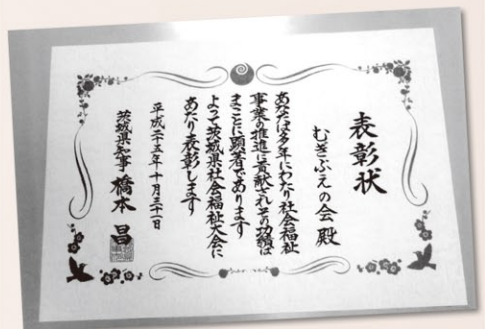 表彰状
むぎぶえの会 殿
あなたは多年にわたり社会福祉
事業の推進に貢献されその功績は
まことに顕著であります
よって茨城県社会福祉大会に
あたり表彰します
平成二十五年十月三十一日
茨城県知事 橋本 昌